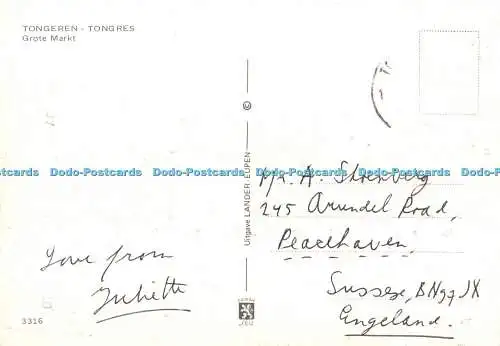 TONGEREN - TONGRES
Grote Markt
©
Uitgave LANDER-EUPEN
Love from
Juliette
3316
245 Arundel Road,
Peacehaven
Sussex, BN
Engeland.
Dodo-Postcards Dodo-Postcards Dodo-Postcards Dodo-Postcards Dodo-Postcards